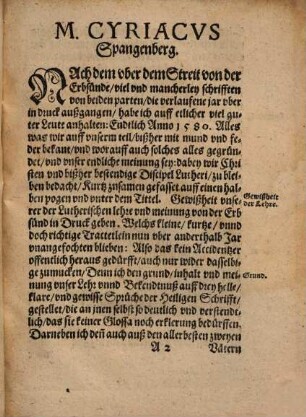 M. CYRIACVS
Spangenberg.
NAch dem vber dem Streit von der
Erbsünde/viel vnd mancherley schrifften
von beiden parten/die verlaufene jar vber
in druck außgangen/habe ich auff etlicher viel gu-
ter Leute anhalten: Endlich Anno 1580. Alles
was wir auff vnserm teil/bißher mit mund vnd fe-
der bekant/vnd worauff auch solches alles gegrün-
det/vnd vnser endliche meinung sey: dabey wir Chri
sten vnd bißher bestendige Discipel Lutheri/zu blei-
ben bedacht/Kurtz zusamen gefasset auff einen hal-
ben pogen vnd vnter dem Tittel. Gewißheit vnse-
rer der Lutherischen lehre vnd meinung von der Erb
sünd in Druck geben. Welchs kleine/kurtze/vnd
doch richtige Tractetlein nun vber anderthalb Jar
vnangefochten blieben: Also das kein Accidentzer
offentlich heraus gedürfft/auch nur wider dasselbi-
ge zumucken/Denn ich den grund/inhalt vnd mei-
nung vnser Lehr vnnd Bekendtnuß auff drey helle/
klare/vnd gewisse Sprüche der Heiligen Schrifft/
gestellet/die an jnen selbst so deutlich vnd verstende-
lich/das sie keiner Glossa noch erklerung bedürffen.
Darneben ich deñ auch auß den allerbesten zweyen
A 2 Vätern
Gewißheit
der Lehre.
Grund.